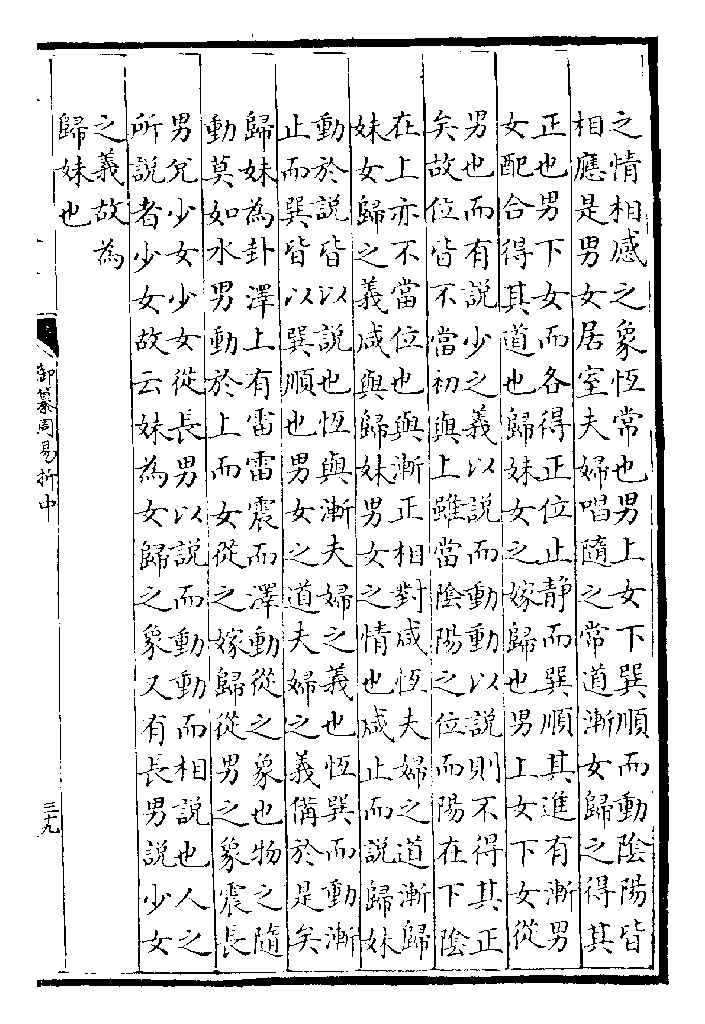 之情相感之象恆常也男上女下巽順而動陰陽皆
相應是男女居室夫婦唱隨之常道漸女歸之得其
正也男下女而各得正位止静而巽順其進有漸男
女配合得其道也歸妹女之嫁歸也男上女下女從
男也而有説少之義以説而動動以説則不得其正
矣故位皆不當初與上雖當陰陽之位而陽在下陰
在上亦不當位也與漸正相對咸恆夫婦之道漸歸
妹女歸之義咸與歸妹男女之情也咸止而説歸妹
動於説皆以説也恆與漸夫婦之義也恆巽而動漸
止而巽皆以巽順也男女之道夫婦之義備於是矣
歸妹為卦澤上有雷雷震而澤動從之象也物之隨
動莫如水男動於上而女從之嫁歸從男之象震長
男兌少女少女從長男以説而動動而相説也人之
所説者少女故云妹為女歸之象又有長男説少女
之義故為
歸妹也
御纂周易折中
三十九